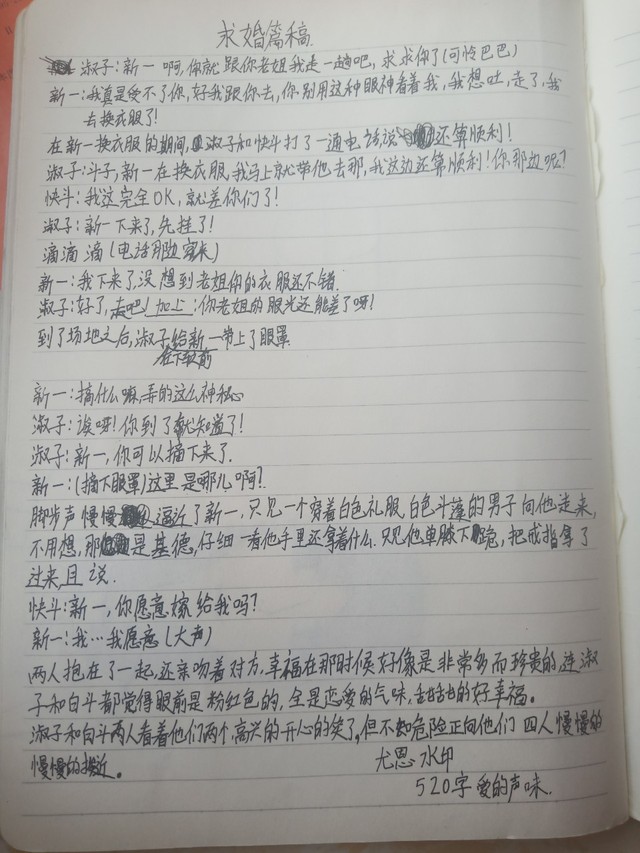 求婚篇稿
淑子:新一啊,你就跟你老姐我走一趟吧,求求你了(可怜巴巴)
新一:我真是受不了你,好我跟你去,你别用这种眼神看着我,我想吐,走了,我
去换衣服了!
在新一换衣服的期间,淑子和快斗打了一通电话说还算顺利!
淑子:斗子,新一在换衣服,我马上就带他去那,我这边还算顺利!你那边呢?
快斗:我这完全OK,就差你们了!
淑子:新一下来了,先挂了!
滴滴滴(电话那边
新一:我下来了,没想到老姐你的衣服还不错.
淑子:好了,走吧!加上:你老姐的眼光还能差了呀!
到了场地之后,淑子给新一带上了眼罩.
在下车前
新一:搞什么嘛,弄的这么神秘
淑子:诶呀!你到了就知道了!
淑子:新一,你可以摘下来了.
新一:(摘下眼罩)这里是哪儿啊?
脚步声慢慢逼近了新一,只见一个穿着白色礼服,白色斗篷的男子向他走来,
不用想,那是基德,仔细一看他手里还拿着什么.只见他单膝下跪,把戒指拿了
过来,且说.
快斗:新一,你愿意嫁给我吗?
新一:我…我愿意(大声)
两人抱在了一起,还亲吻着对方,幸福在那时候好像是非常多而珍贵的,连淑
子和白斗都觉得眼前是粉红色的,全是恋爱的气味,甜甜的好幸福。
淑子和白斗两人看着他们两个,高兴的开心的笑了,但不知危险正向他们四人慢慢的
慢慢的
尤思水印
520字爱的声味.